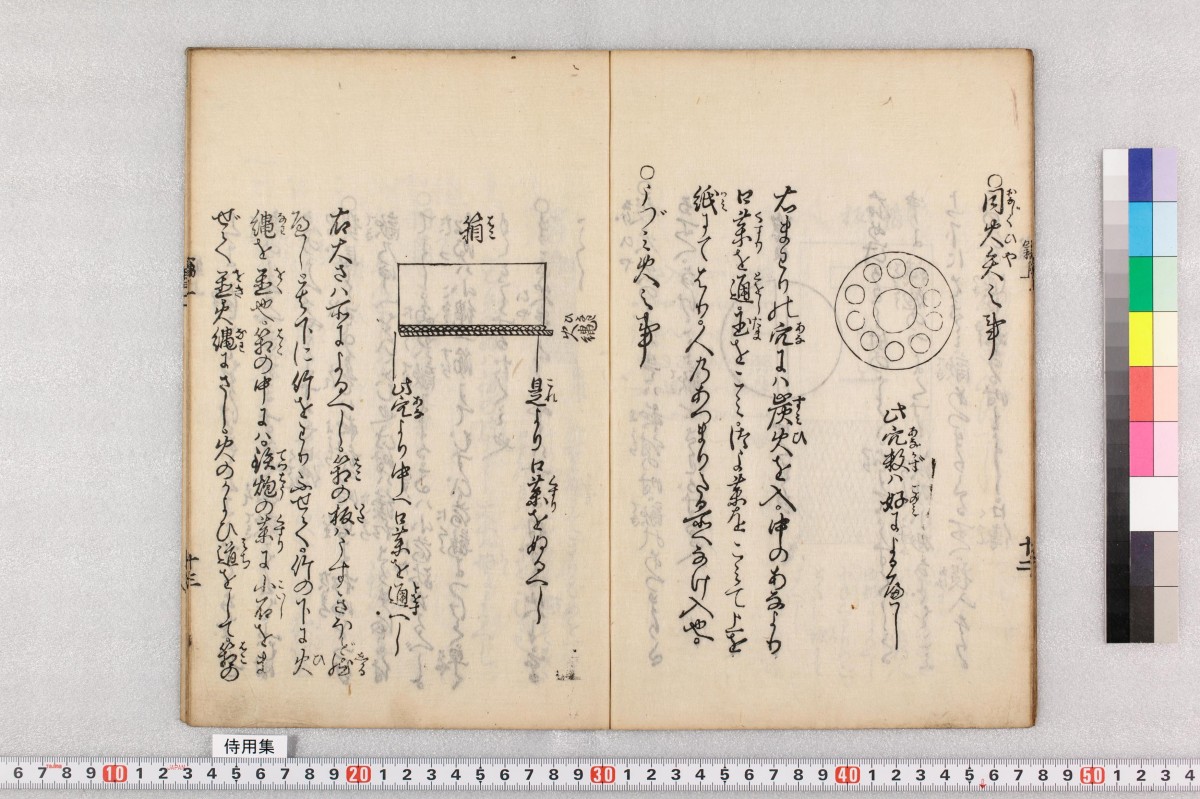 〇同火矢之事
此穴数ハ好によるべし
右まわりの穴にハ炭火を入。中のあなより
口薬を通。玉をこミ。後に薬をこミて上を
紙にてはり。人のあつまりたる所へなけ入也。
〇うづミ火之事
火縄入
是より口薬をぬるへし
箱
此穴より中へ口薬を通へし
右大さハ所によるへし。箱の板ハうすきほど
るし。其下に竹をとりふせて。竹の下に火
縄を置也。箱の中にハ。鉄炮の薬に小石をま
ぜて置。火縄にさし。火のかよひ道をして箱の
十二
十三
侍用集